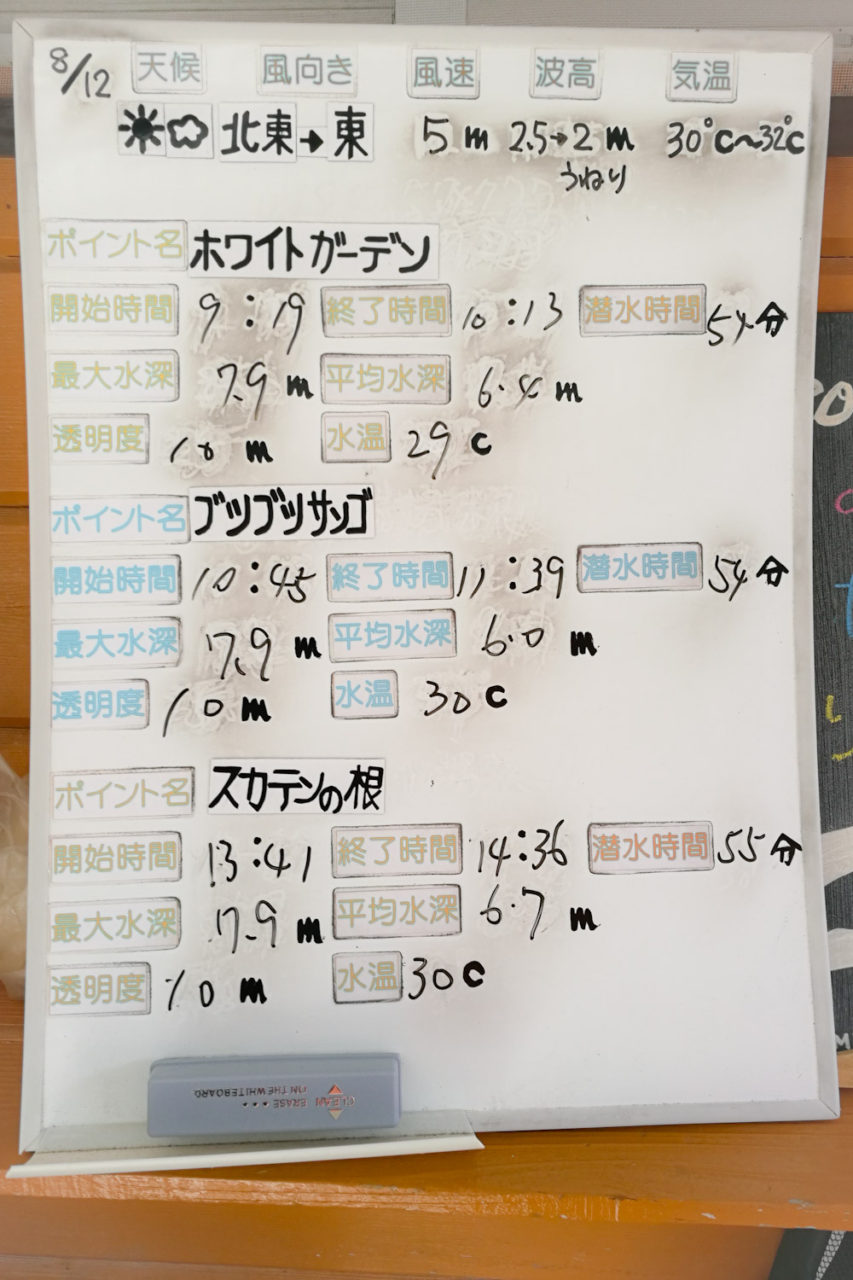 8/12 天候 風向き 風速 波高 気温
北東→東 5m 2.5→2m 30°C〜32°C
うねり
ポイント名 ホワイトガーデン
開始時間 9:19 終了時間 10:13 潜水時間 54分
最大水深 7.9m 平均水深 6.4m
透明度 10m 水温 29C
ポイント名 ブツブツサンゴ
開始時間 10:45 終了時間 11:39 潜水時間 54分
最大水深 7.9m 平均水深 6.0m
透明度 10m 水温 30C
ポイント名 スカテンの根
開始時間 13:41 終了時間 14:36 潜水時間 55分
最大水深 7.9m 平均水深 6.7m
透明度 10m 水温 30C
CLEAN ERASE
ON THE WHITEBOARD